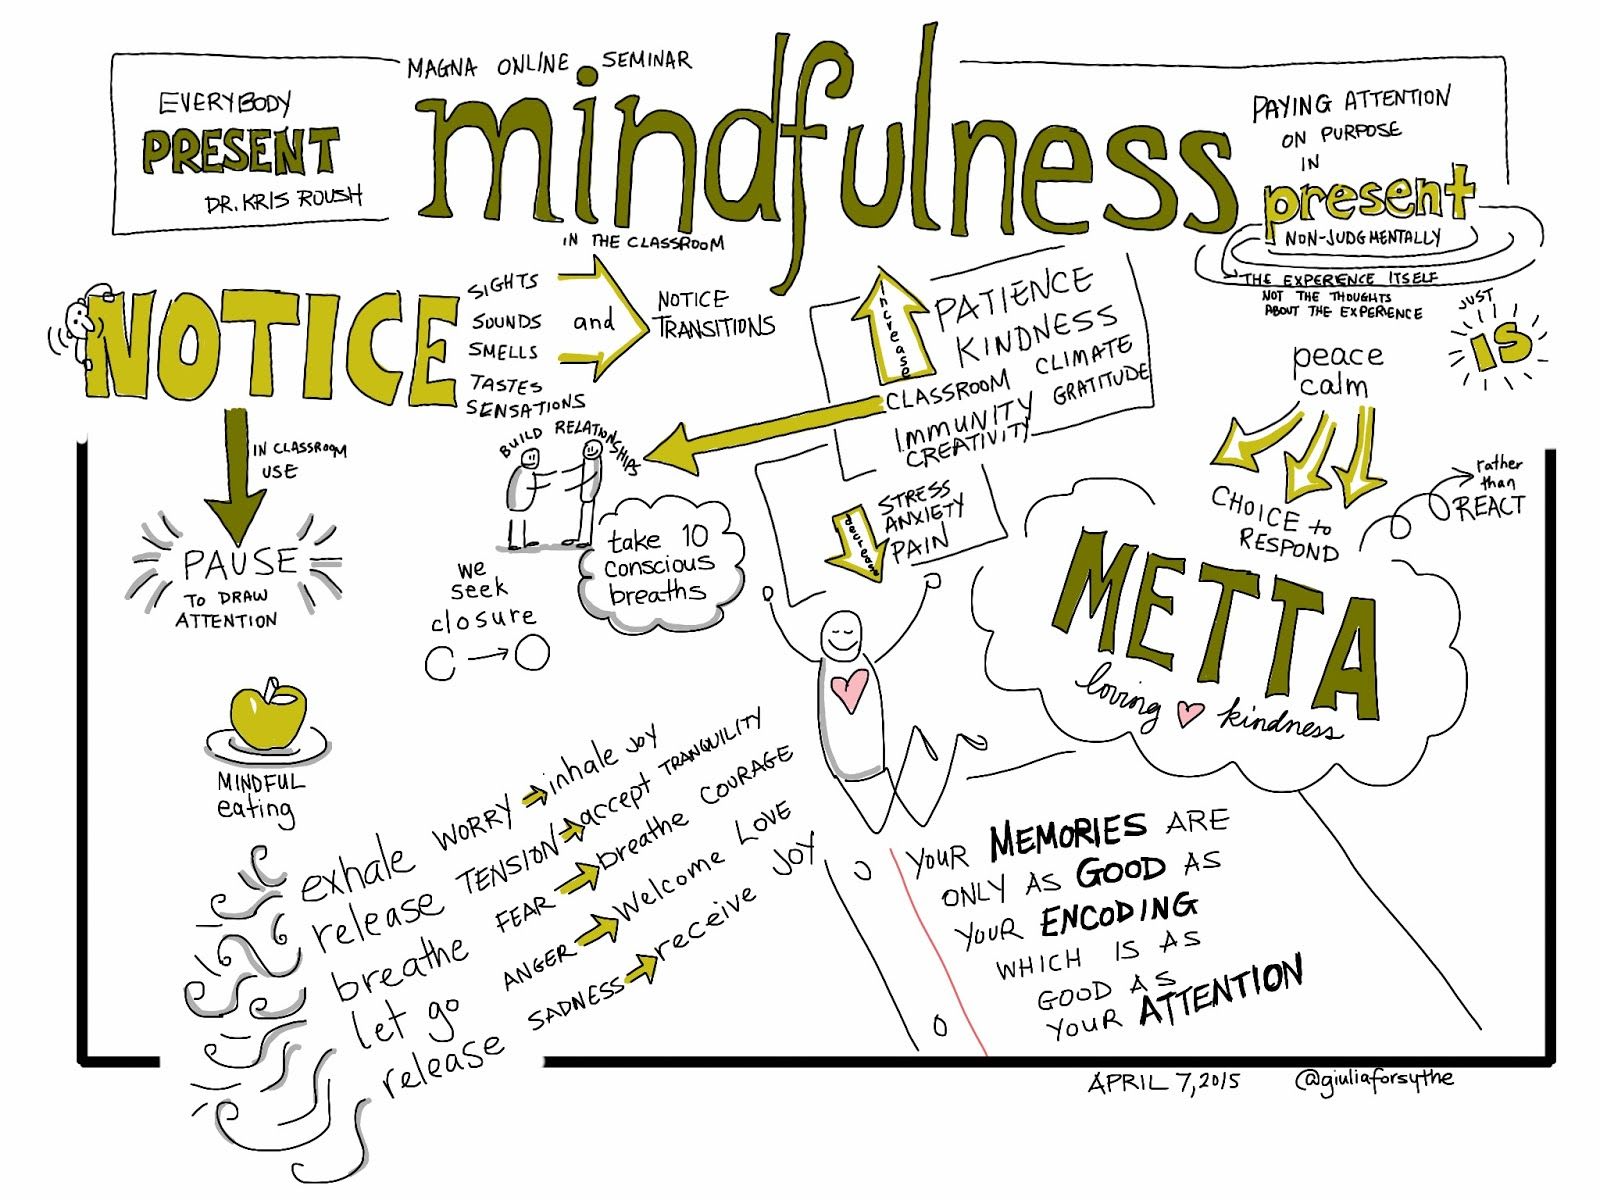 MAGNA ONLINE SEMINAR
mindfulness
IN THE CLASSROOM
EVERYBODY
PRESENT
DR. KRIS ROUSH
PAYING ATTENTION
ON PURPOSE
IN
present
NON-JUDGMENTALLY
THE EXPERIENCE ITSELF
NOT THE THOUGHTS
ABOUT THE EXPERIENCE
JUST
IS
NOTICE
SIGHTS
SOUNDS
SMELLS
TASTES
SENSATIONS
and
NOTICE
TRANSITIONS
increase
PATIENCE
KINDNESS
CLASSROOM CLIMATE
GRATITUDE
IMMUNITY
CREATIVITY
BUILD RELATIONSHIPS
decrease
STRESS
ANXIETY
PAIN
peace
calm
CHOICE to
RESPOND
rather
than
REACT
IN CLASSROOM
USE
PAUSE
TO DRAW
ATTENTION
take 10
conscious
breaths
we
seek
closure
METTA
loving kindness
MINDFUL
eating
exhale WORRY inhale JOY
release TENSION accept TRANQUILITY
breathe FEAR breathe COURAGE
let go ANGER Welcome LOVE
release SADNESS receive JOY
YOUR MEMORIES ARE
ONLY AS GOOD AS
YOUR ENCODING
WHICH IS AS
GOOD AS
YOUR ATTENTION
APRIL 7, 2015
@giuliaforsythe